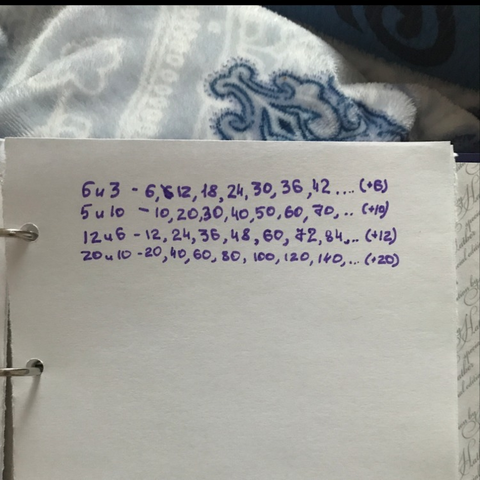 6 и 3 - 6, 12, 18, 24, 30, 36, 42 .... (+6)
5 и 10 - 10, 20, 30, 40, 50, 60, 70, .. (+10)
12 и 6 - 12, 24, 36, 48, 60, 72, 84, .. (+12)
20 и 10 - 20, 40, 60, 80, 100, 120, 140, ... (+20)